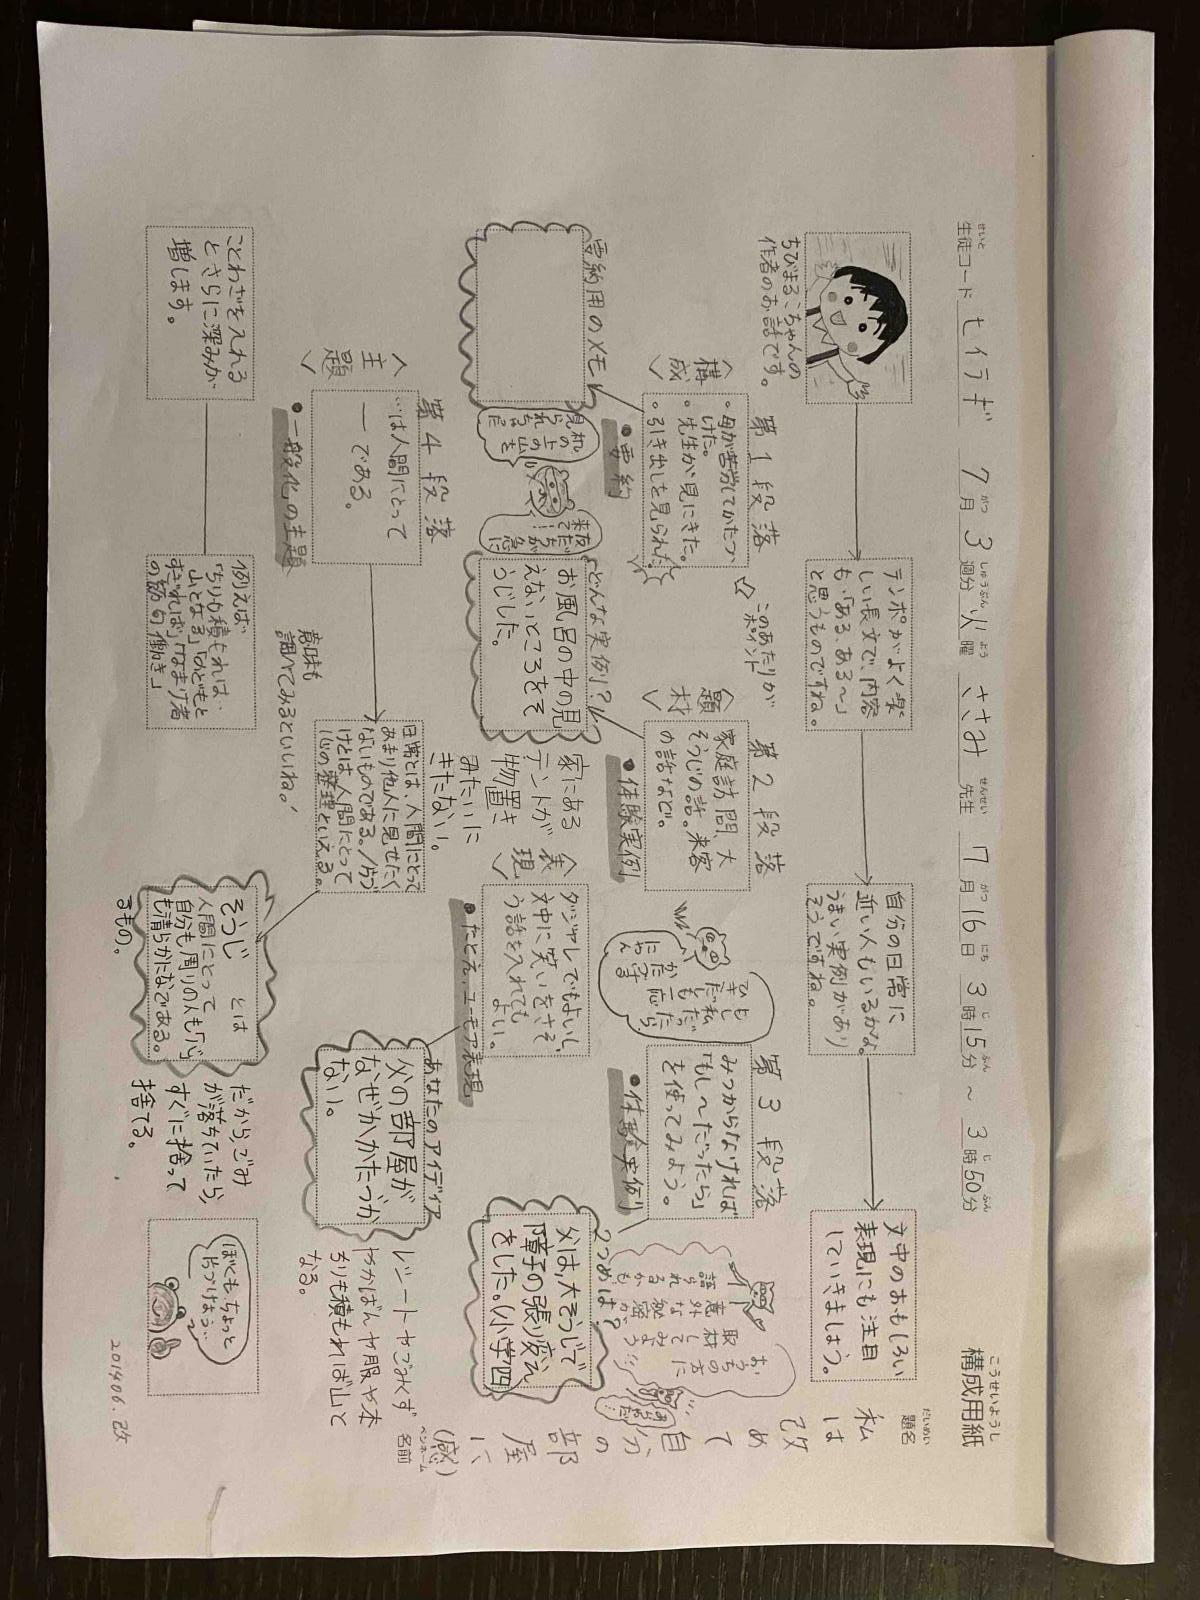 構成用紙
こうせいようし
生徒コード セイテギ 7月3週分 火曜 ささみ 先生 7月16日 3時15分 ~ 3時50分
せいと がつ しゅうぶん よう せんせい がつ にち じ ふん じ ふん
題名
だいめい
私は改めて自分の部屋に
(感)
ペンネーム
名前
ちびまる子ちゃんの
作者のお話です。
テンポがよく楽
しい長文で、内容
も、「ある、ある~」
と思うものですね。
自分の日常に
近い人もいるかな。
うまい実例があり
そうですね。
文中のおもしろい
表現にも注目
していきましょう。
第1段落
<構成>
・母が苦労してかたづ
けた。
・先生が見にきた。
・引き出しを見られた
●要約
要約用のメモ
☆このあたりが
ポイント
第2段落
<題材>
家庭訪問、大
そうじの話。来客
の話など。
●体験実例
どんな実例?
お風呂の中の見
えないところをそ
うじした。
机の上の山を
見られちゃった
友だちが急に
来て…!
第3段落
みつからなければ
「もし~だったら」
を使ってみよう。
●体験実例
もし私だったら
2つめは?
父は、大そうじで
障子の張り変え
をした。(小学四
おうちの方に
取材してみよう
意外な秘密が
語られるかも
家にある
テントが
物置き
みたいに
きたない。
<表現>
ダジャレでもよいし、
文中に笑いをさそ
う話を入れても
よい。
●たとえ、ユーモア表現
あなたのアイディア
父の部屋が
なぜかかたづか
ない。
レシートやごみくず
やかばんや服や本
ちりも積もれば山と
なる。
第4段落
<主題>
…は人間にとって
ーである。
●一般化の主題
日常とは、人間にとって
あまり他人に見せたく
ないものである。/片づ
けとは人間にとって
心の整理といえる。
そうじ とは
人間にとって
自分も周りの人も「心」
も清らかになである。
るもの。
だから、ごみ
が落ちていたら、
すぐに捨って
捨てる。
ことわざを入れる
とさらに深みが
増します。
例えば、
「ちりも積もれば…
山となる」「のどもと
すぎれば」「なまけ者
の節句働き」
意味も
調べてみるといいね!
ぼくも、ちょっと
片づけよう…
201406.改